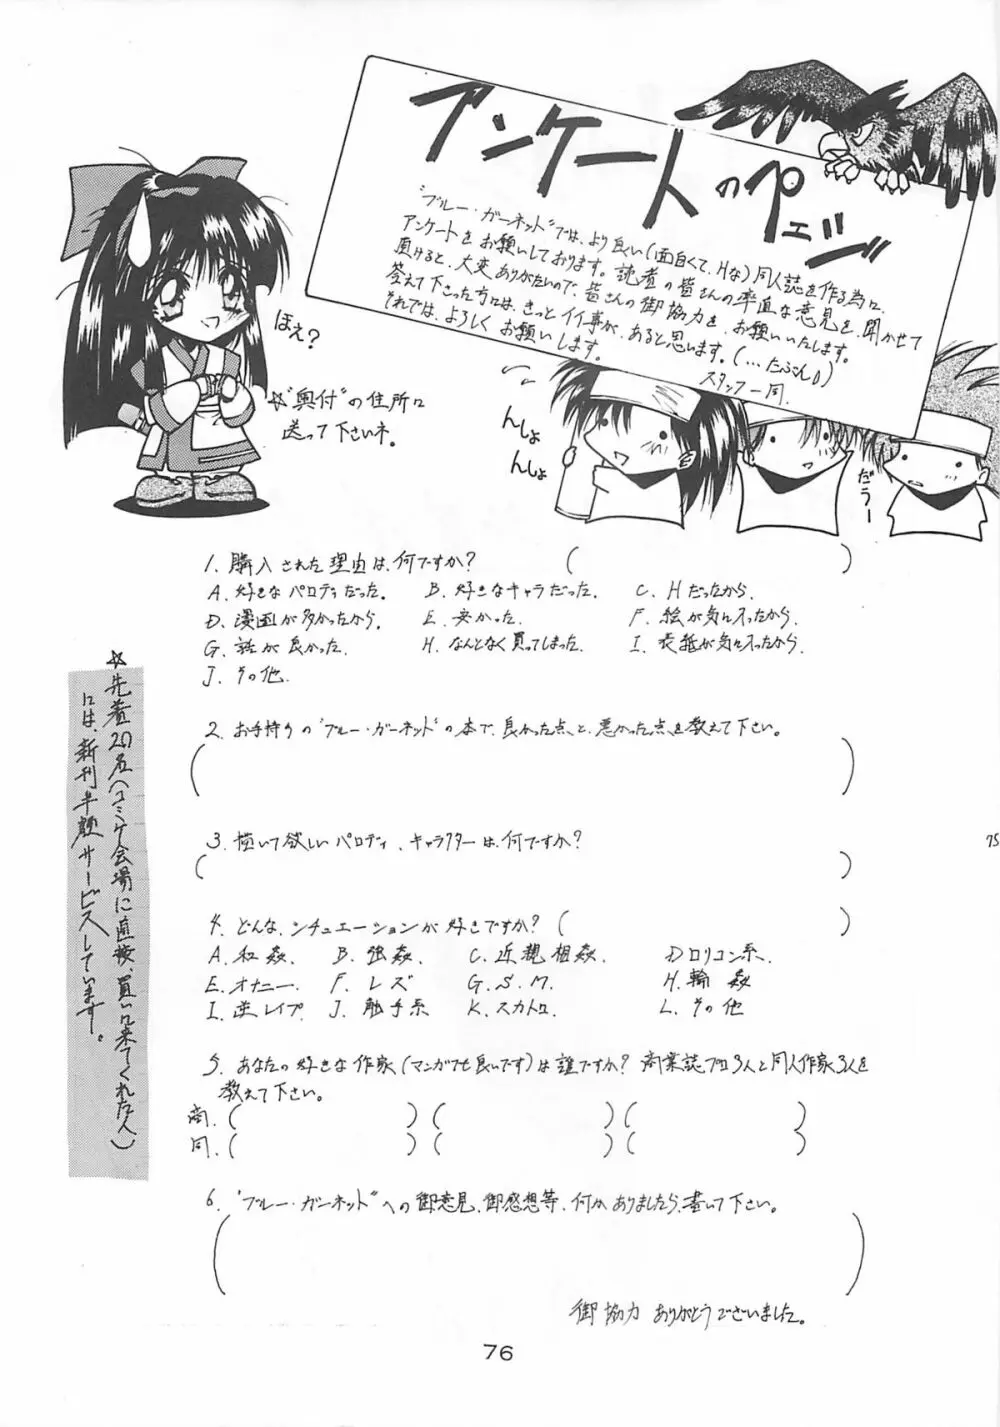 アンケートのページ
"ブルー・ガーネット"では、より良い(面白くて、Hな)同人誌を作る為に、
アンケートをお願いしております。読者の皆さんの率直な意見を、聞かせて
頂けると、大変ありがたいので、皆さんの御協力を、お願いいたします。
答えて下さった方には、きっとイイ事が、あると思います。(…たぶん)
それでは、よろしくお願いします。
スタッフ一同.
ほえ?
☆"奥付"の住所に
送って下さいネ。
んしょ
んしょ
だうー
1. 購入された理由は、何ですか? ( )
A. 好きなパロディだった. B. 好きなキャラだった. C. Hだったから.
D. 漫画が多かったから. E. 安かった. F. 絵が気に入ったから.
G. 話が良かった. H. なんとなく買ってしまった. I. 表紙が気に入ったから.
J. その他.
2. お手持りの"ブルー・ガーネット"の本で、良かった点、と、悪かった点、を教えて下さい。
( )
3. 描いて欲しいパロディ、キャラクターは、何ですか?
( )
4. どんな、シチュエーションが好きですか? ( )
A. 和姦. B. 強姦. C. 近親相姦. D. ロリコン系.
E. オナニー. F. レズ G. S.M. H. 輪姦
I. 逆レイプ. J. 触手系 K. スカトロ. L. その他
5. あなたの好きな作家(マンガでも良いです)は誰ですか? 商業誌プロ3人と同人作家3人を
教えて下さい。
商. ( ) ( ) ( )
同. ( ) ( ) ( )
6. "ブルー・ガーネット"への御意見、御感想等、何かありましたら、書いて下さい。
( )
御協力ありがとうございました。
☆先着20名(コミケ会場に直接、買いに来てくれた人)
には、新刊半額サービスしています。
76
75